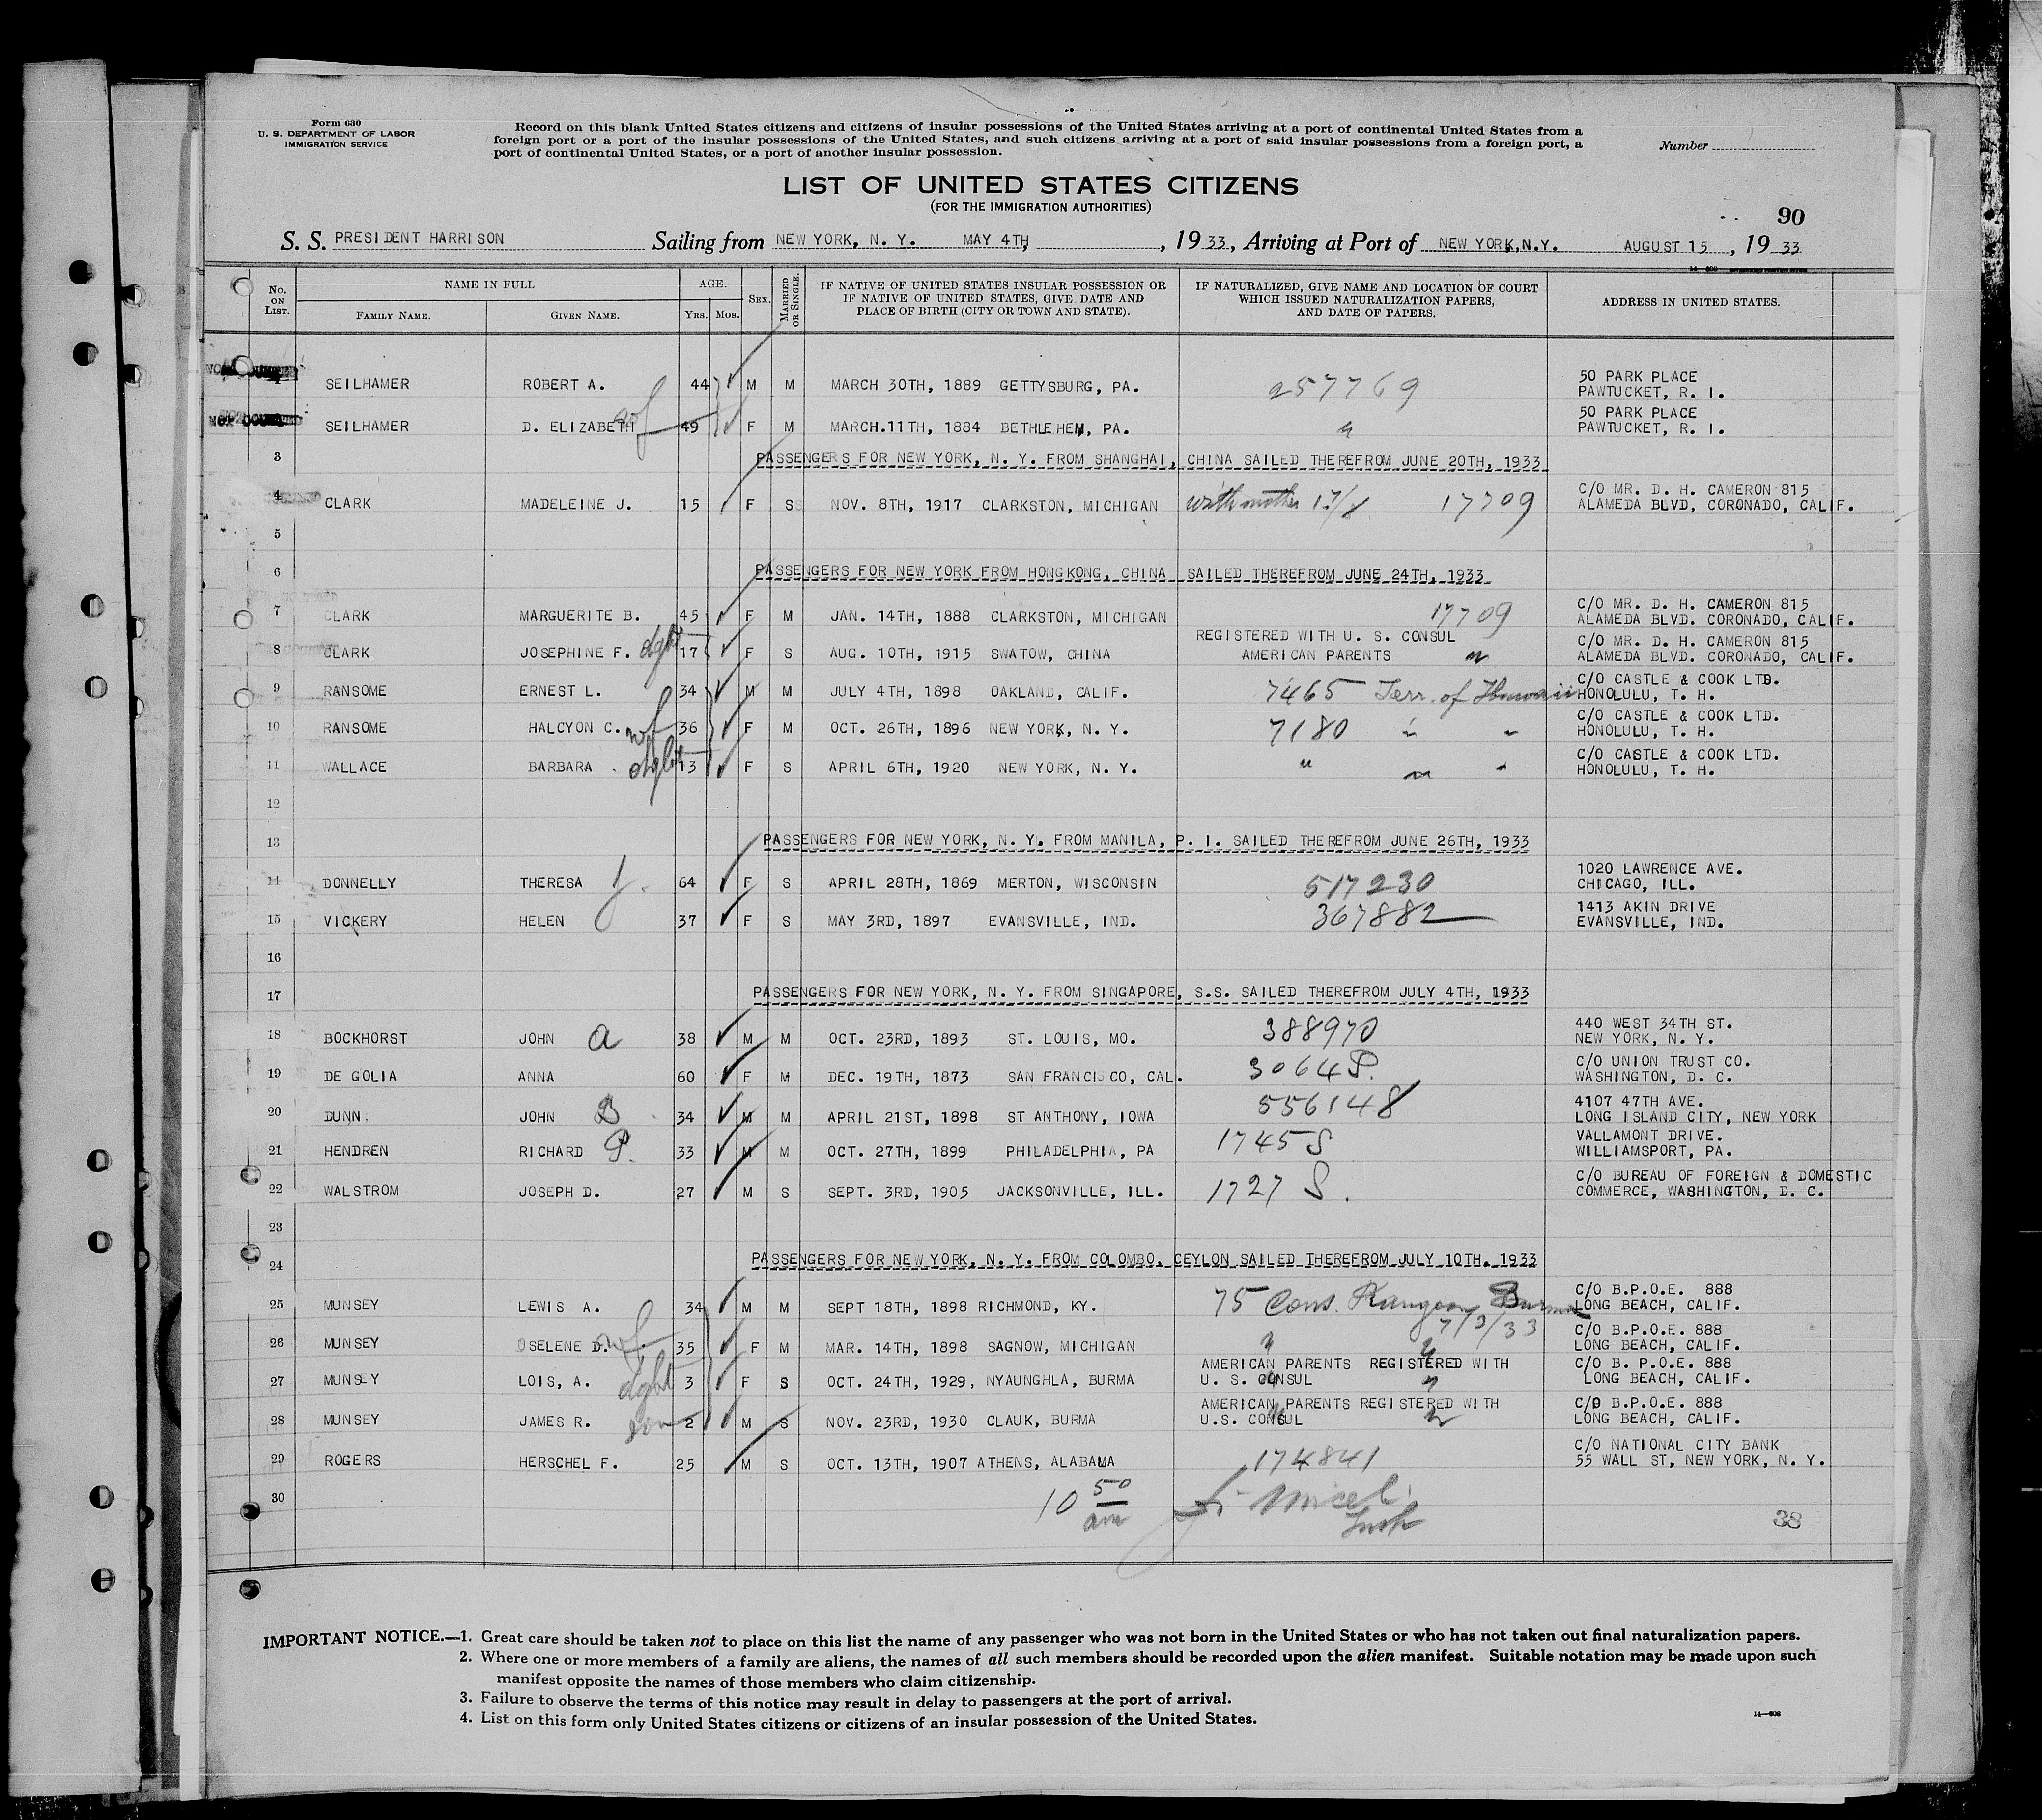 Form 630
U. S. DEPARTMENT OF LABOR
IMMIGRATION SERVICE
Record on this blank United States citizens and citizens of insular possessions of the United States arriving at a port of continental United States from a
foreign port or a port of the insular possessions of the United States, and such citizens arriving at a port of said insular possessions from a foreign port, a
port of continental United States, or a port of another insular possession.
Number
LIST OF UNITED STATES CITIZENS
(FOR THE IMMIGRATION AUTHORITIES)
90
S. S. PRESIDENT HARRISON Sailing from NEW YORK, N. Y. MAY 4TH, , 1933, Arriving at Port of NEW YORK,N.Y. AUGUST 15 , 1933
No. ON LIST. NAME IN FULL FAMILY NAME. GIVEN NAME. AGE. Yrs. Mos. SEX. MARRIED OR SINGLE. IF NATIVE OF UNITED STATES INSULAR POSSESSION OR IF NATIVE OF UNITED STATES, GIVE DATE AND PLACE OF BIRTH (CITY OR TOWN AND STATE). IF NATURALIZED, GIVE NAME AND LOCATION OF COURT WHICH ISSUED NATURALIZATION PAPERS, AND DATE OF PAPERS. ADDRESS IN UNITED STATES.
SEILHAMER ROBERT A. 44 M M MARCH 30TH, 1889 GETTYSBURG, PA. 257769 50 PARK PLACE PAWTUCKET, R. I.
SEILHAMER D. ELIZABETH wf 49 F M MARCH.11TH, 1884 BETHLEHEM, PA. " 50 PARK PLACE PAWTUCKET, R. I.
3 PASSENGERS FOR NEW YORK, N. Y. FROM SHANGHAI, CHINA SAILED THEREFROM JUNE 20TH, 1933
4 CLARK MADELEINE J. 15 F S NOV. 8TH, 1917 CLARKSTON, MICHIGAN with mother 17/8 17709 C/O MR. D. H. CAMERON 815 ALAMEDA BLVD, CORONADO, CALIF.
5
6 PASSENGERS FOR NEW YORK FROM HONGKONG, CHINA SAILED THEREFROM JUNE 24TH, 1933
7 CLARK MARGUERITE B. 45 F M JAN. 14TH, 1888 CLARKSTON, MICHIGAN 17709 C/O MR. D. H. CAMERON 815 ALAMEDA BLVD. CORONADO, CALIF.
8 CLARK JOSEPHINE F. dght 17 F S AUG. 10TH, 1915 SWATOW, CHINA REGISTERED WITH U. S. CONSUL AMERICAN PARENTS " C/O MR. D. H. CAMERON 815 ALAMEDA BLVD. CORONADO, CALIF.
9 RANSOME ERNEST L. 34 M M JULY 4TH, 1898 OAKLAND, CALIF. 7465 Terr. of Hawaii C/O CASTLE & COOK LTD. HONOLULU, T. H.
10 RANSOME HALCYON C. wf 36 F M OCT. 26TH, 1896 NEW YORK, N. Y. 7180 " " C/O CASTLE & COOK LTD. HONOLULU, T. H.
11 WALLACE BARBARA dght 13 F S APRIL 6TH, 1920 NEW YORK, N. Y. " " " C/O CASTLE & COOK LTD. HONOLULU, T. H.
12
13 PASSENGERS FOR NEW YORK, N. Y. FROM MANILA, P. I. SAILED THEREFROM JUNE 26TH, 1933
14 DONNELLY THERESA 64 F S APRIL 28TH, 1869 MERTON, WISCONSIN 517230 1020 LAWRENCE AVE. CHICAGO, ILL.
15 VICKERY HELEN 37 F S MAY 3RD, 1897 EVANSVILLE, IND. 367882 1413 AKIN DRIVE EVANSVILLE, IND.
16
17 PASSENGERS FOR NEW YORK, N. Y. FROM SINGAPORE, S.S. SAILED THEREFROM JULY 4TH, 1933
18 BOCKHORST JOHN a 38 M M OCT. 23RD, 1893 ST. LOUIS, MO. 388970 440 WEST 34TH ST. NEW YORK, N. Y.
19 DE GOLIA ANNA 60 F M DEC. 19TH, 1873 SAN FRANCISCO, CAL. 3064 S. C/O UNION TRUST CO. WASHINGTON, D. C.
20 DUNN. JOHN B 34 M M APRIL 21ST, 1898 ST ANTHONY, IOWA 556148 4107 47TH AVE. LONG ISLAND CITY, NEW YORK
21 HENDREN RICHARD P. 33 M M OCT. 27TH, 1899 PHILADELPHIA, PA 1745 S VALLAMONT DRIVE. WILLIAMSPORT, PA.
22 WALSTROM JOSEPH D. 27 M S SEPT. 3RD, 1905 JACKSONVILLE, ILL. 1727 S. C/O BUREAU OF FOREIGN & DOMESTIC COMMERCE, WASHINGTON, D. C.
23
24 PASSENGERS FOR NEW YORK, N. Y. FROM COLOMBO, CEYLON SAILED THEREFROM JULY 10TH, 1933
25 MUNSEY LEWIS A. 34 M M SEPT 18TH, 1898 RICHMOND, KY. 75 Cons. Rangoon Burma 7/3/33 C/O B.P.O.E. 888 LONG BEACH, CALIF.
26 MUNSEY OSELENE D. wf 35 F M MAR. 14TH, 1898 SAGNOW, MICHIGAN " " C/O B.P.O.E. 888 LONG BEACH, CALIF.
27 MUNSEY LOIS, A. dght 3 F S OCT. 24TH, 1929, NYAUNGHLA, BURMA AMERICAN PARENTS REGISTERED WITH U. S. CONSUL " " C/O B. P.O.E. 888 LONG BEACH, CALIF.
28 MUNSEY JAMES R. son 2 M S NOV. 23RD, 1930 CLAUK, BURMA AMERICAN PARENTS REGISTERED WITH U.S. CONSUL " " C/O B.P.O.E. 888 LONG BEACH, CALIF.
29 ROGERS HERSCHEL F. 25 M S OCT. 13TH, 1907 ATHENS, ALABAMA 174841 C/O NATIONAL CITY BANK 55 WALL ST, NEW YORK, N. Y.
30 10 50 am
38
IMPORTANT NOTICE.—1. Great care should be taken not to place on this list the name of any passenger who was not born in the United States or who has not taken out final naturalization papers.
2. Where one or more members of a family are aliens, the names of all such members should be recorded upon the alien manifest. Suitable notation may be made upon such
manifest opposite the names of those members who claim citizenship.
3. Failure to observe the terms of this notice may result in delay to passengers at the port of arrival.
4. List on this form only United States citizens or citizens of an insular possession of the United States.
14—608